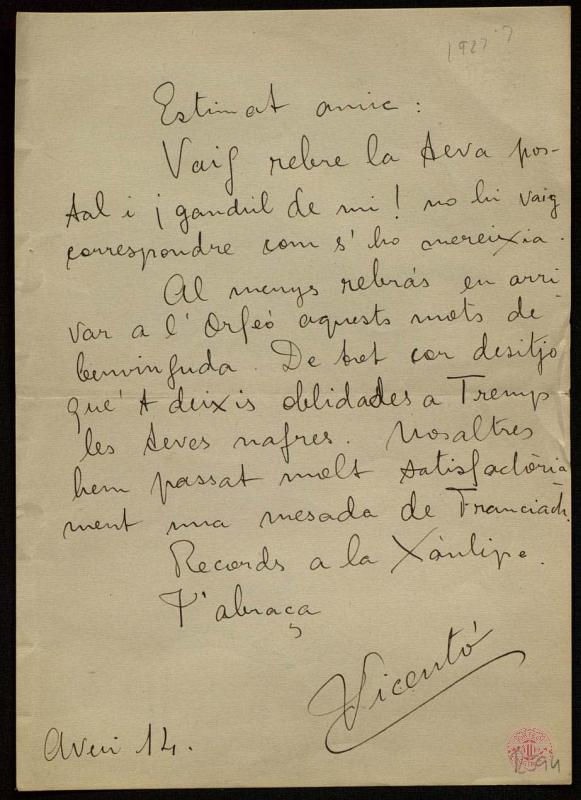 1927?
Estimat amic:
Vaig rebre la teva pos-
tal i ¡gandul de mi! no hi vaig
correspondre com s'ho mereixia.
Al menys rebràs en arri
var a l'Orfeó aquests mots de
benvinguda. De tot cor desitjo
que't deixis oblidades a Tremp
les teves nafres. Nosaltres
hem passat molt satisfactòria
ment una mesada de Franciach.
Records a la Xàntipe.
T'abraça
Vicentó
Avui 14.